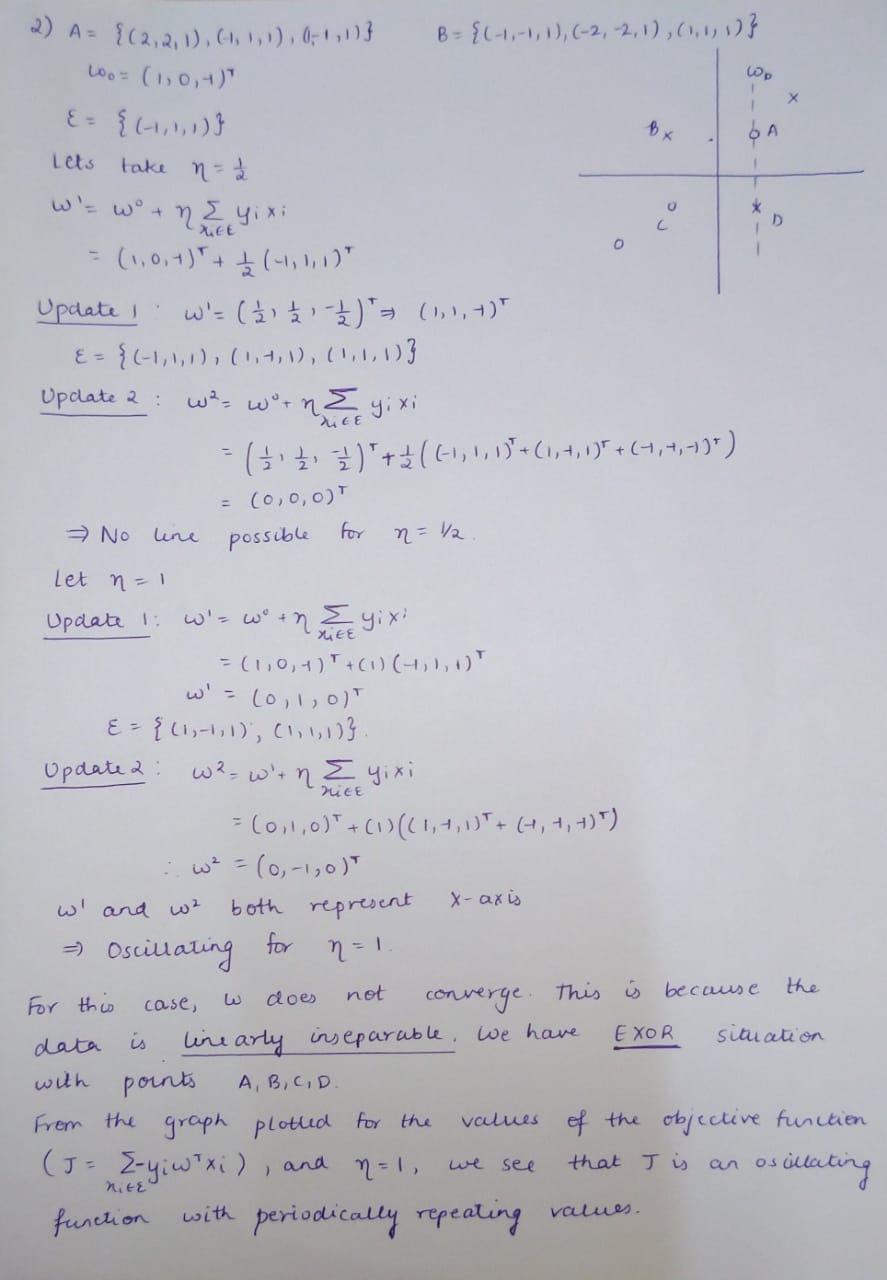 2) A = {(2,2,1), (-1,1,1), (1,-1,1)} B = {(-1,-1,1), (-2,-2,1), (1,1,1)}
ω₀ = (1,0,-1)ᵀ
ωD
x
B x
A
ε = {(-1,1,1)}
Lets take η = 1/2
ω' = ω⁰ + η Σ yixi
xiεE
C
D
= (1,0,-1)ᵀ + 1/2 (-1,1,1)ᵀ
Update 1 : ω' = (1/2, 1/2, -1/2)ᵀ ⇒ (1,1,-1)ᵀ
ε = {(-1,1,1), (1,-1,1), (1,1,1)}
Update 2 : ω² = ω⁰ + η Σ yixi
xiεE
= (1/2, 1/2, -1/2)ᵀ + 1/2 ((-1,1,1)ᵀ + (1,-1,1)ᵀ + (-1,-1,-1)ᵀ)
= (0,0,0)ᵀ
⇒ No line possible for η = 1/2.
Let η = 1
Update 1: ω' = ω⁰ + η Σ yixi
xiεE
= (1,0,-1)ᵀ + (1) (-1,1,1)ᵀ
ω' = (0,1,0)ᵀ
ε = {(1,-1,1), (1,1,1)}.
Update 2 : ω² = ω' + η Σ yixi
xiεE
= (0,1,0)ᵀ + (1)((1,-1,1)ᵀ + (-1,-1,-1)ᵀ)
∴ ω² = (0,-1,0)ᵀ
ω' and ω² both represent X-axis
⇒ Oscillating for η = 1.
For this case, ω does not converge. This is because the
data is linearly inseparable. We have EXOR situation
with points A, B, C, D.
From the graph plotted for the values of the objective function
(J = Σ-yiωᵀxi), and η=1, we see that J is an oscillating
xiεE
function with periodically repeating values.